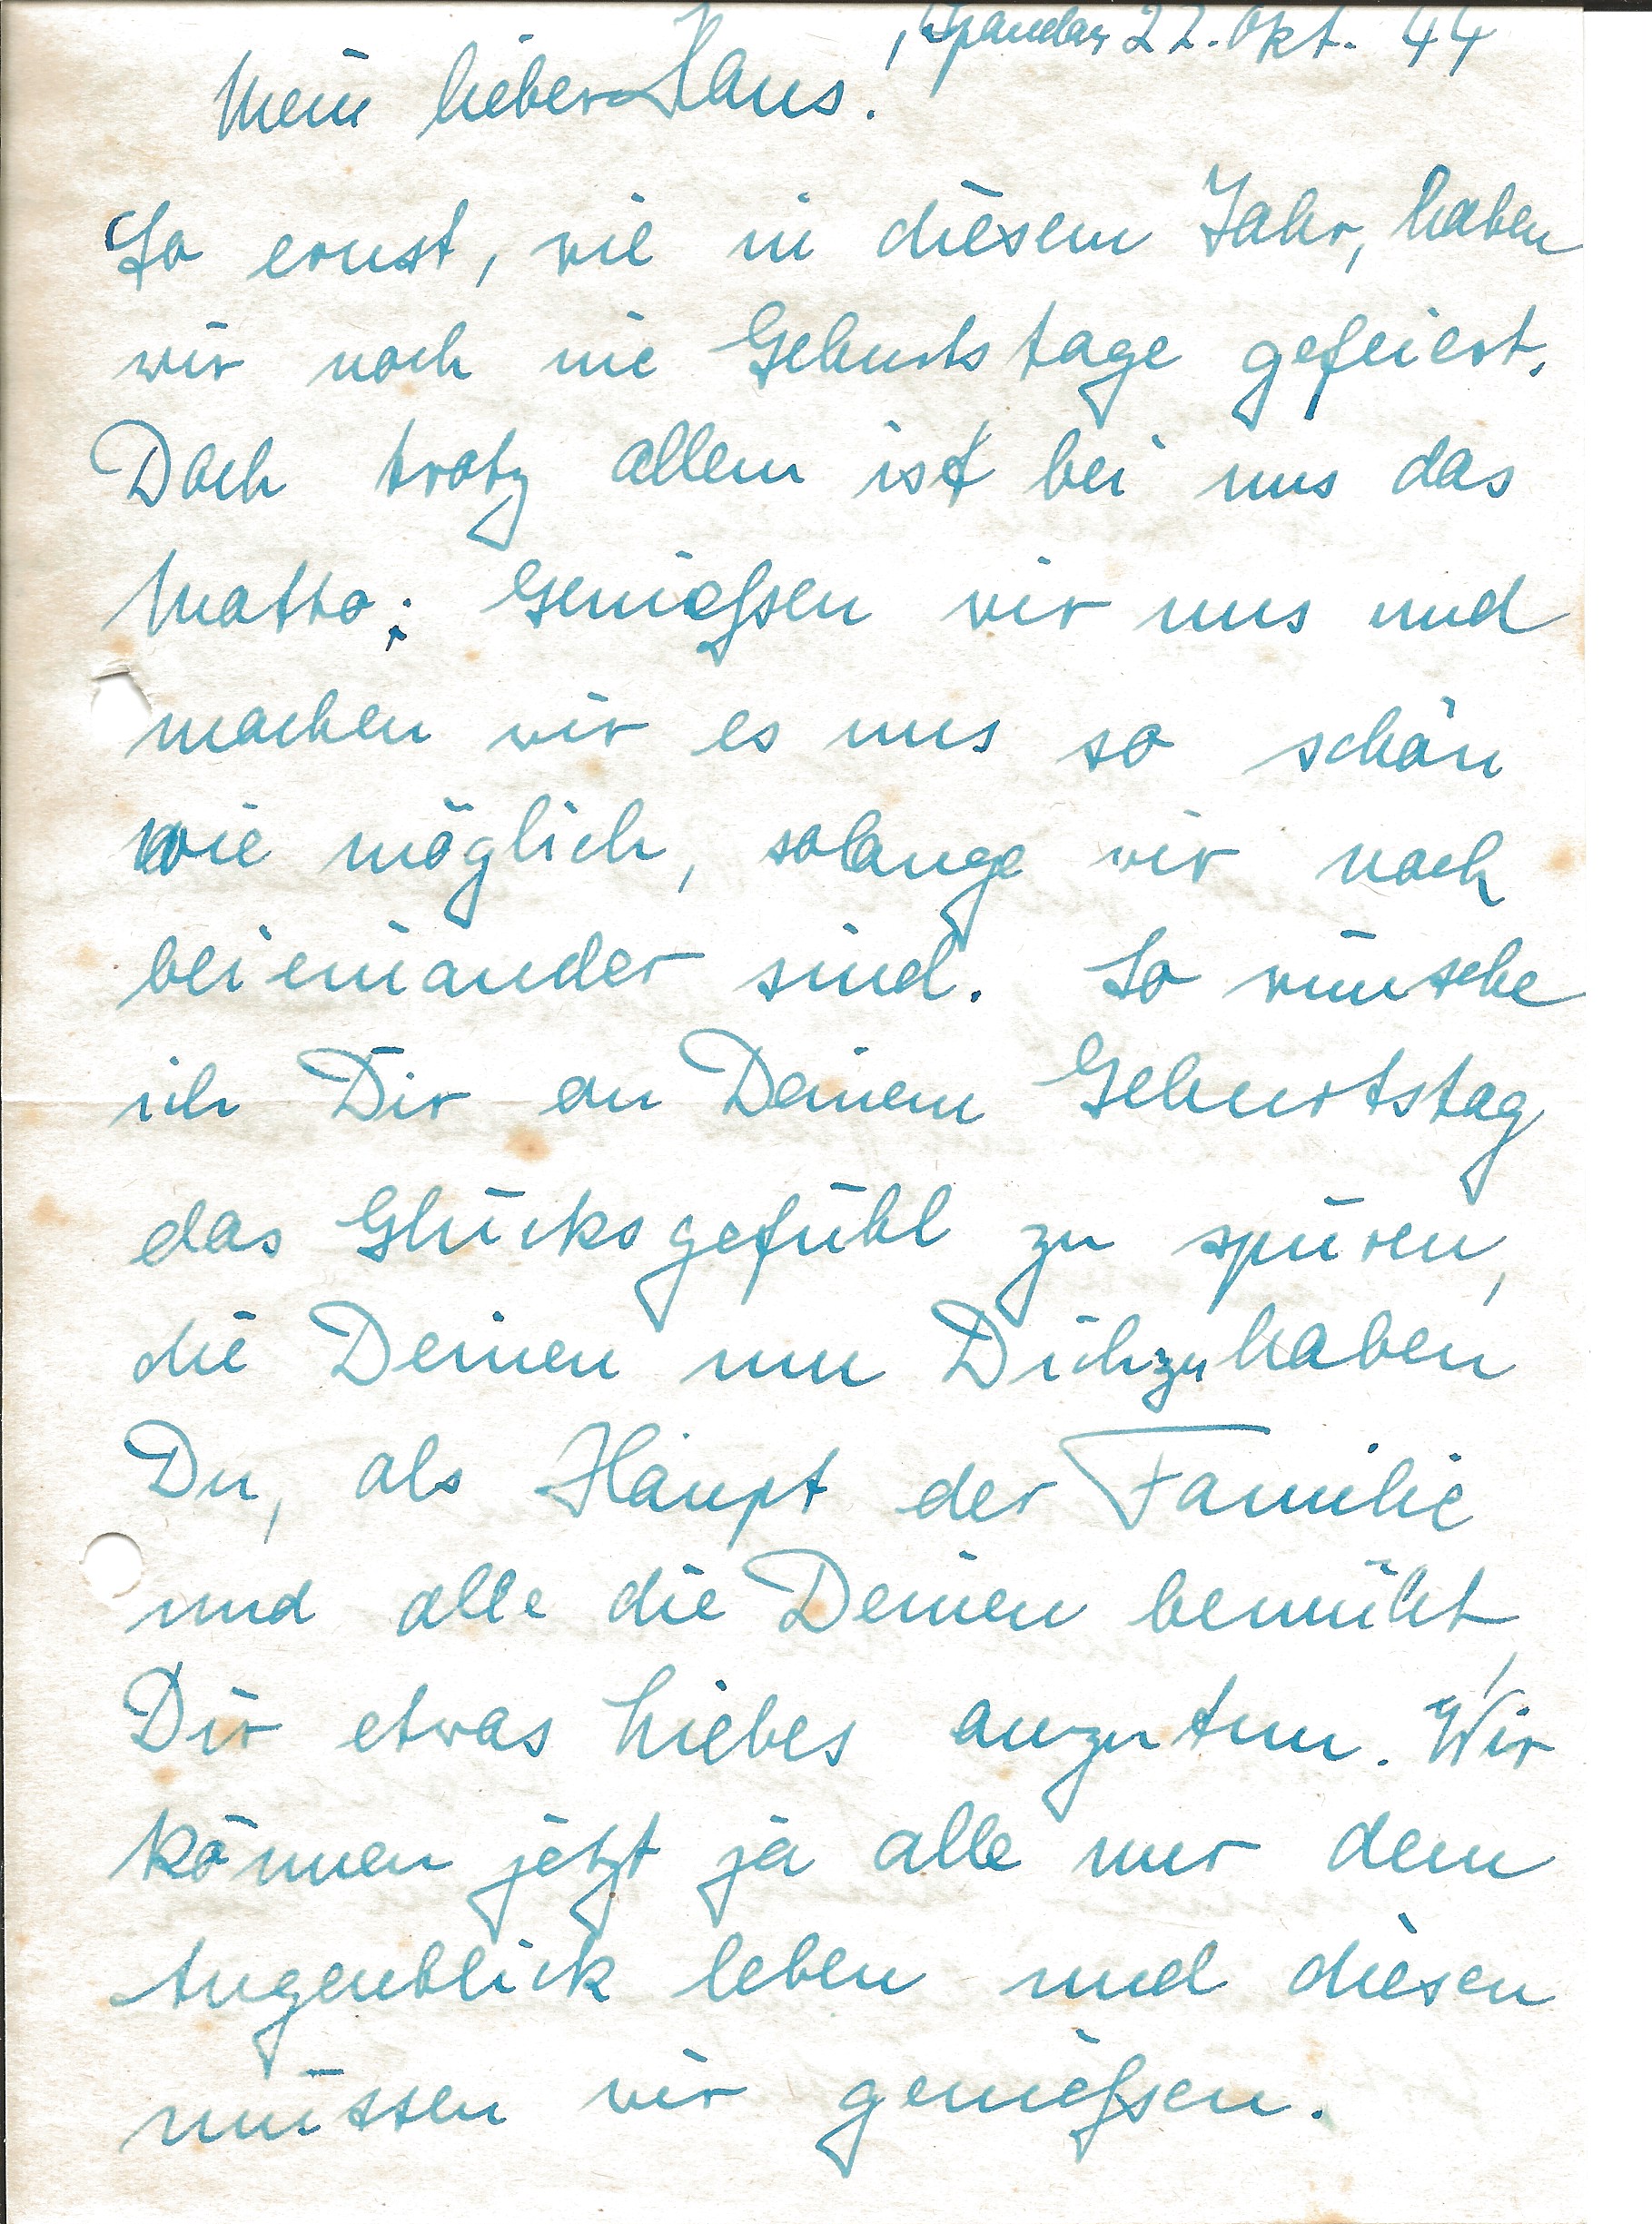 Spandau, 22. Okt. 44
Mein lieber Hans!
So ernst, wie in diesem Jahr, haben
wir noch nie Geburtstage gefeiert.
Doch trotz allem ist bei uns das
Motto: Genießen wir uns und
machen wir es uns so schön
wie möglich, solange wir noch
beieinander sind. So wünsche
ich Dir an Deinem Geburtstag
das Glücksgefühl zu spüren,
die Deinen um Dich zu haben
Du, als Haupt der Familie
und alle die Deinen bemüht,
Dir etwas Liebes anzutun. Wir
können jetzt ja alle nur dem
Augenblick leben und diesen
müssen wir genießen.